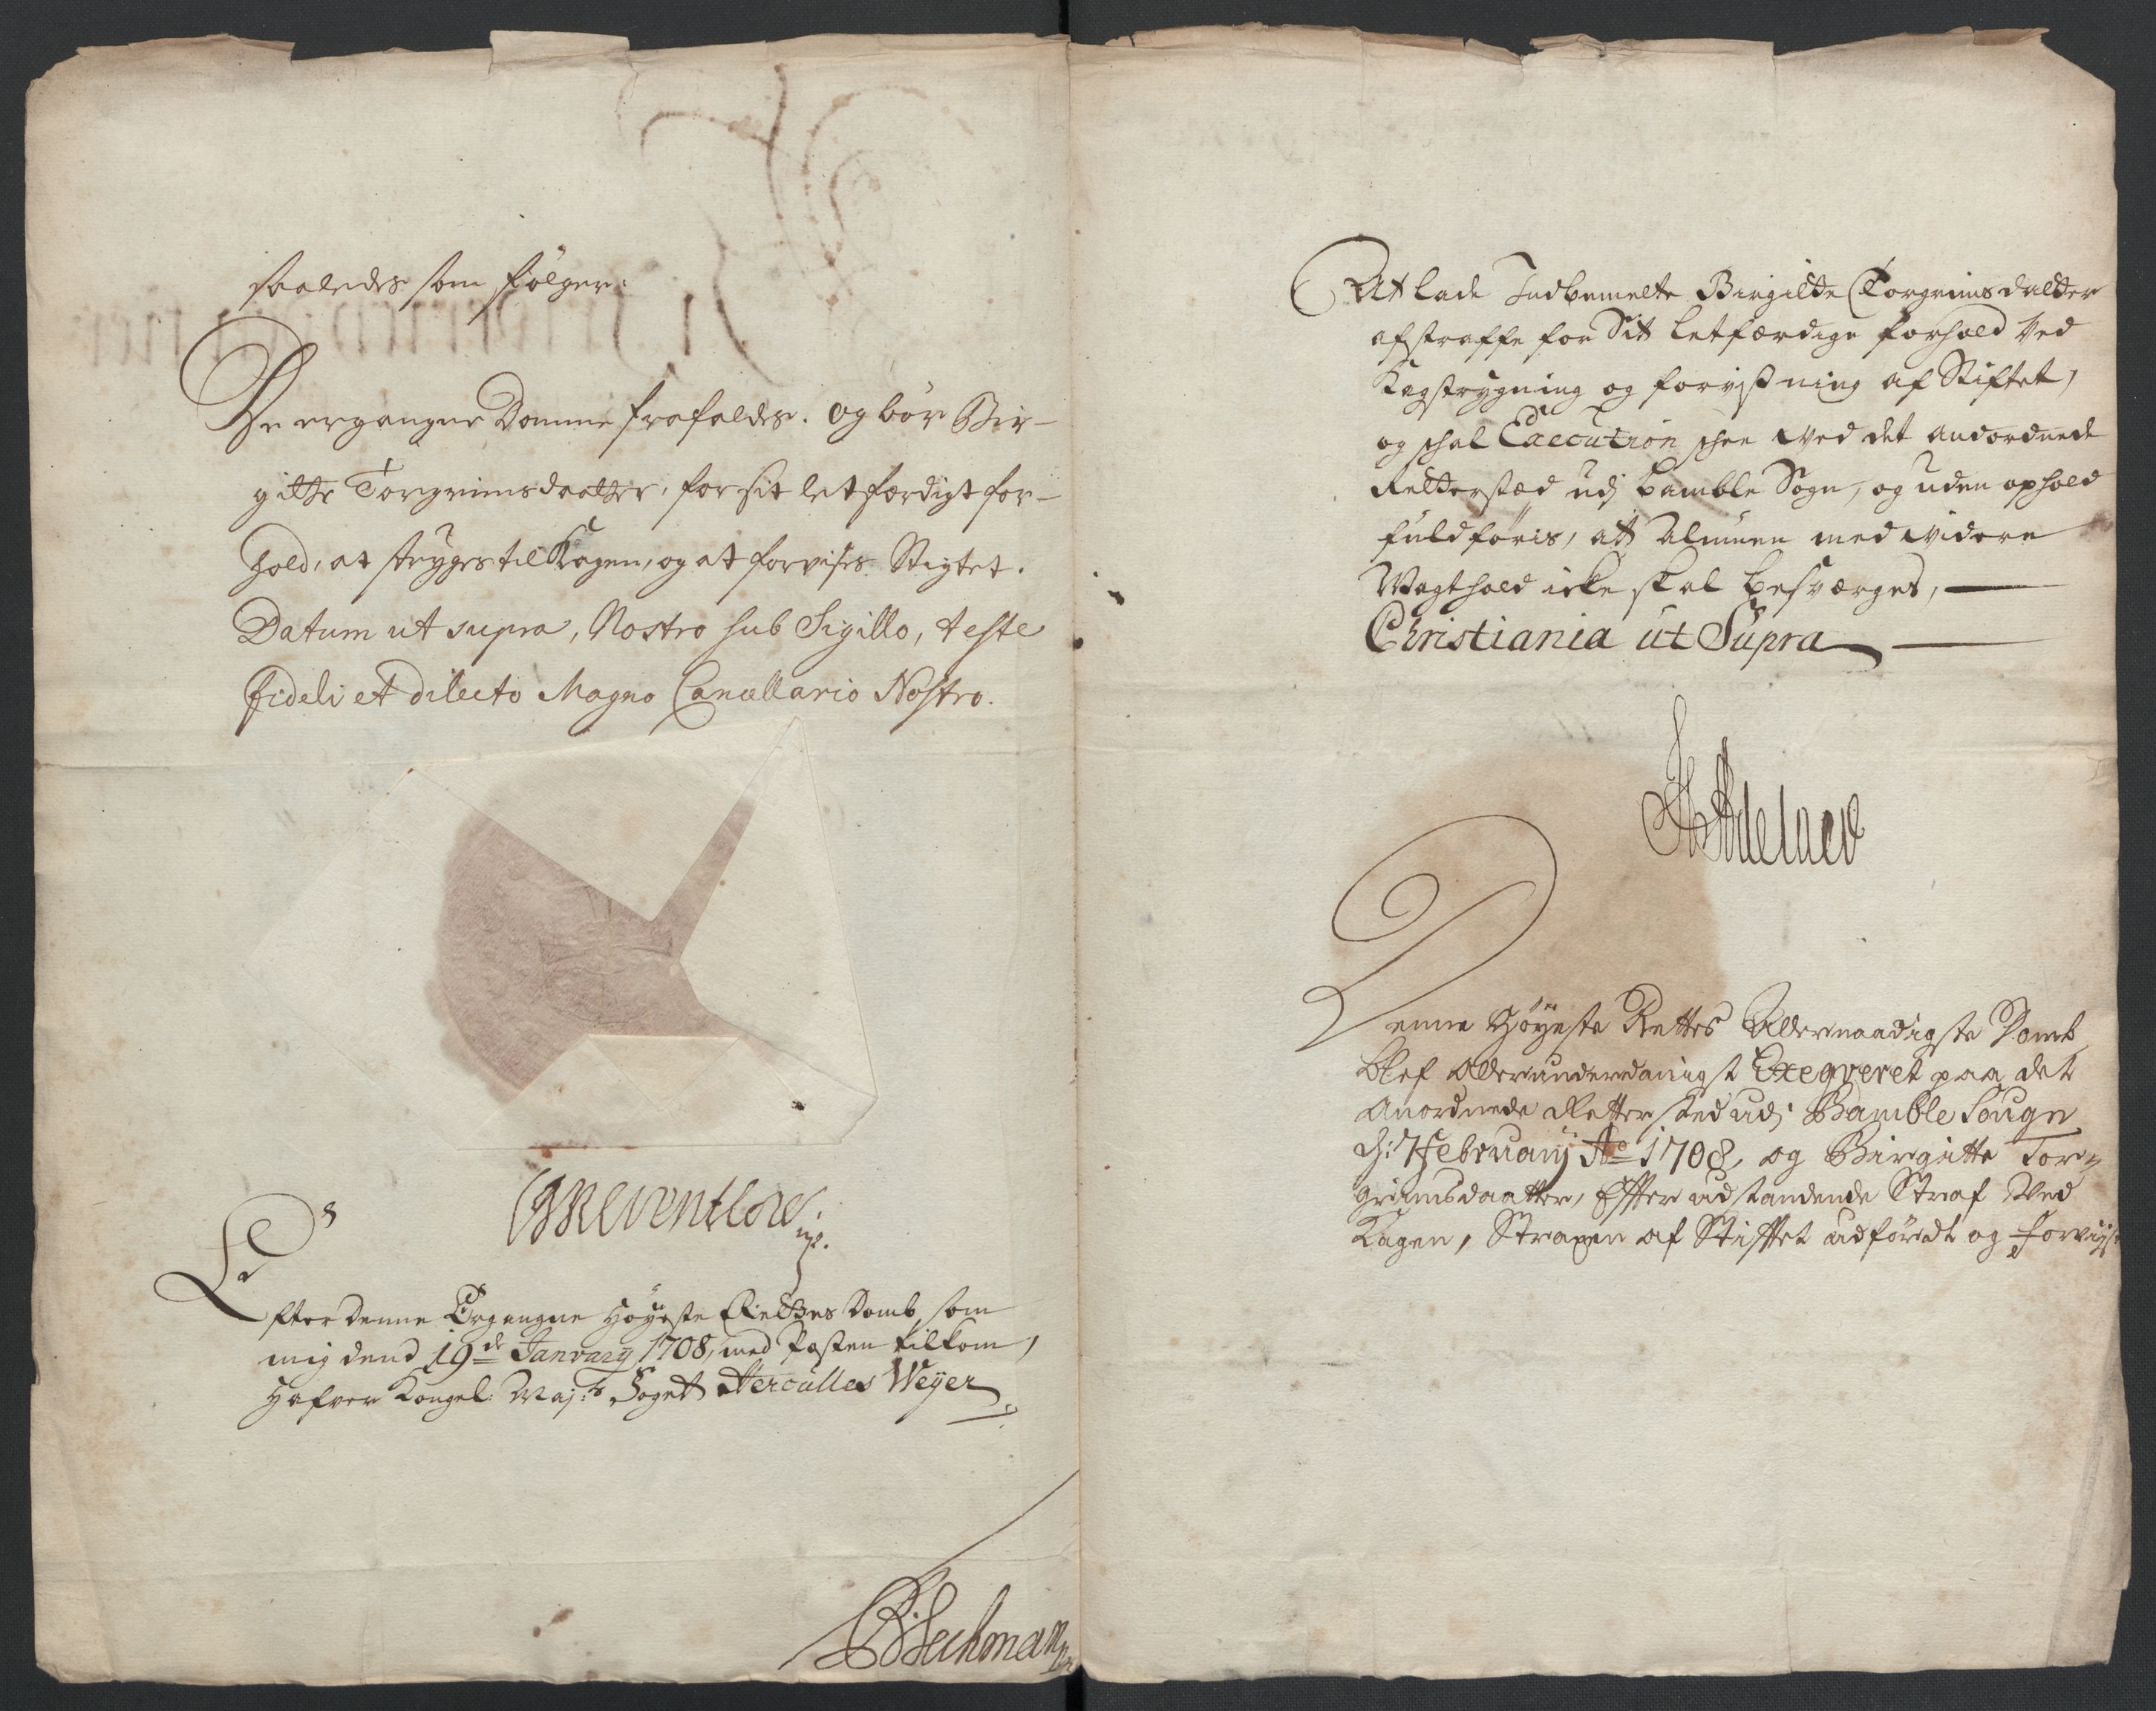 saaledes som følger:
De ergangne Domme frafaldes. og bør Bir-
gitte Torgrimsdaatter, for sit letfærdigt for-
hold, at stryges til Kagen, og at forvises Stigtet.
Datum ut supra, Nostro sub Sigillo, teste
fideli et dilecto Magno Cancellario Nostro.
CReventlow
Efter Denne Ergangne Høyeste Rettes Domb, som
mig dend 19de Janvary 1708, med Posten tilkom,
Hafver Kongel: Maj:ts Foget Herculles Weyer
At lade Indbemelte Birgitte Torgrimsdatter
afstraffe for Sit letfærdige forhold ved
Kagstrygning og forvisning af Stiftet,
og schal Execution schee ved det anordnede
Retterstæd udj Bamble Sogn, og uden ophold
fuldføris, att Almuen med videre
Wagthold icke skal besværges,
Christiania ut Supra
Adelaer
Denne Høyeste Rettes Allernaadigste Domb
blef Allerunderdanigst Exeqveret paa det
Anordnede Rettersted udj Bamble Sougn
d: 7 February Ao 1708, og Birgitte Tor-
grimsdaatter, Efter udstandende Straf Ved
Kagen, Straxen af Stifftet udførdt og Forviist